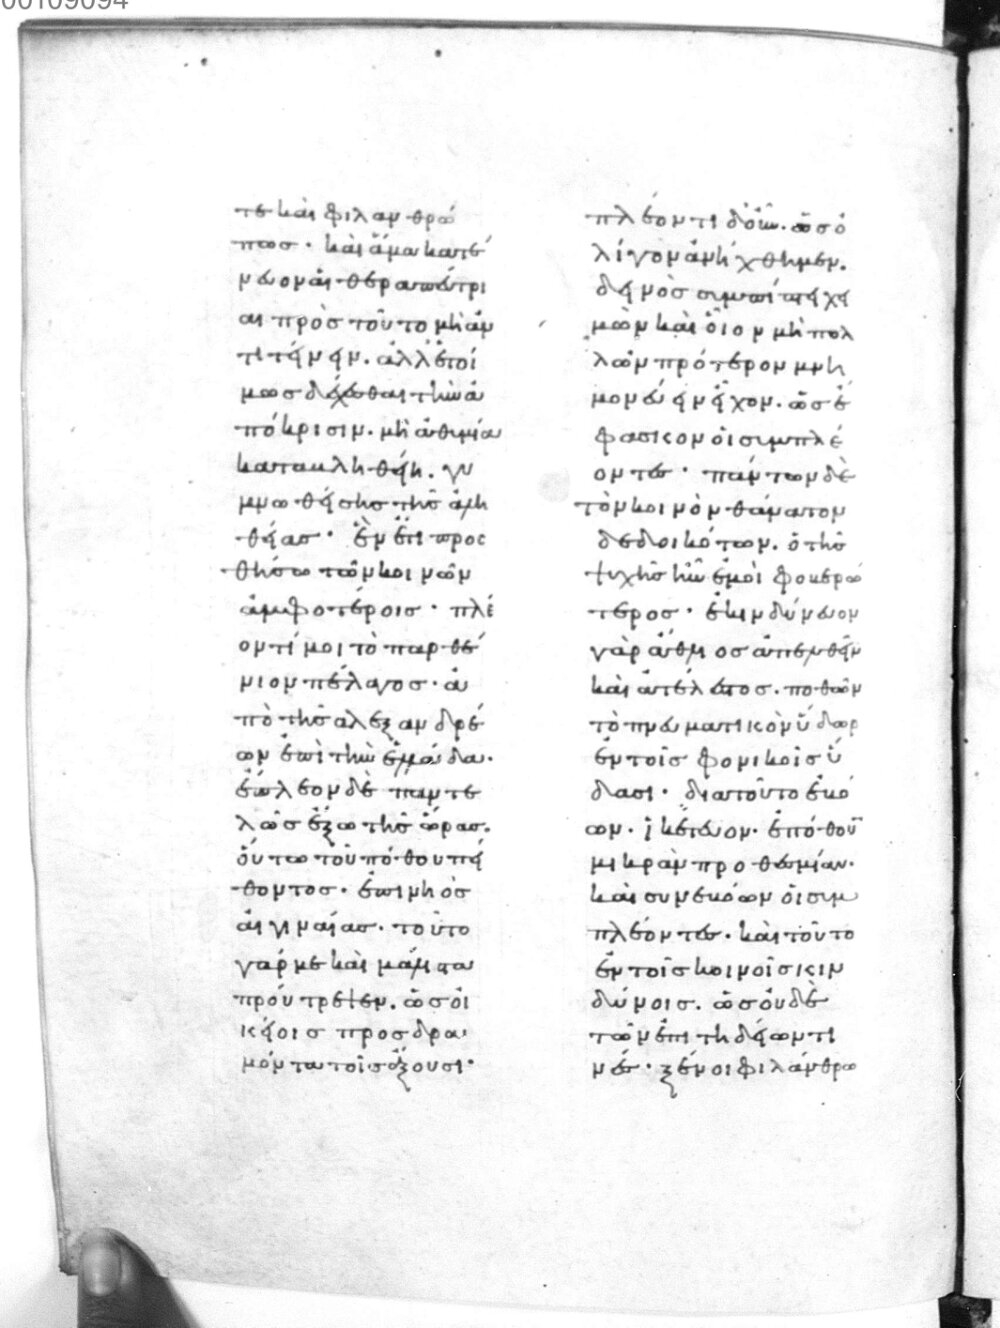 00109094
τε καὶ φιλανθρώ
πως· καὶ ἅμα κατέ
νευον αἱ θεραπεύτρι
αι πρὸς τοῦτο μὴ ἀν
τιτείνειν. ἀλλ' ἑτοί
μως δέχεσθαι τὴν ἀ
πόκρισιν. μὴ ἀθυμία
κατακληθείη. γυ
μνωθείσης τῆς ἀλη
θείας· ἓν ἔτι προς
θήσω τῶν κοινῶν
ἀμφοτέροις· πλέ
οντί μοι τὸ παρθέ
νιον πέλαγος· ἀ
πὸ τῆς αλεξανδρέ
ων ἐπὶ τὴν ἑλλάδα.
ἔπλεον δὲ παντε
λῶς ἔξω τῆς ὥρας.
οὕτω τοῦ πόθου πεί
θοντος· ἐπὶ νηὸς
αἰγιναίας· τοῦτο
γάρ με καὶ μάλιστα
προύτρεπεν. ὡς οἰ
κείοις προσδρα
μόντα τοῖς ἄξουσι·
πλέοντι δ' οὖν. ὡς ὀ
λίγον ἀνήχθημεν.
δεινὸς συμπίπτει χει
μὼν καὶ οἷον μὴ πολ
λῶν πρότερον μνη
μονεύειν εἶχον. ὡς ἔ
φασκον οἱ συμπλέ
οντες· πάντων δὲ
τὸν κοινὸν θάνατον
δεδοικότων. ὁ τῆς
ψυχῆς ἦν ἐμοὶ φοβερώ
τερος· ἐκινδύνευον
γὰρ ἄθλιος ἀπελθεῖν
καὶ ἀτέλεστος. ποθῶν
τὸ πνευματικὸν ὕδωρ
ἐν τοῖς φονικοῖς ὕ
δασι· διατοῦτο ἐβό
ων. ἱκέτευον. ἐπόθουν
μικρὰν προθεσμίαν·
καὶ συνεβόων οἱ συμ
πλέοντες. καὶ τοῦτο
ἐν τοῖς κοινοῖς κιν
δύνοις. ὡς οὐδὲ
τῶν ἐπιτηδείων τι
νές· ξένοι φιλάνθρω